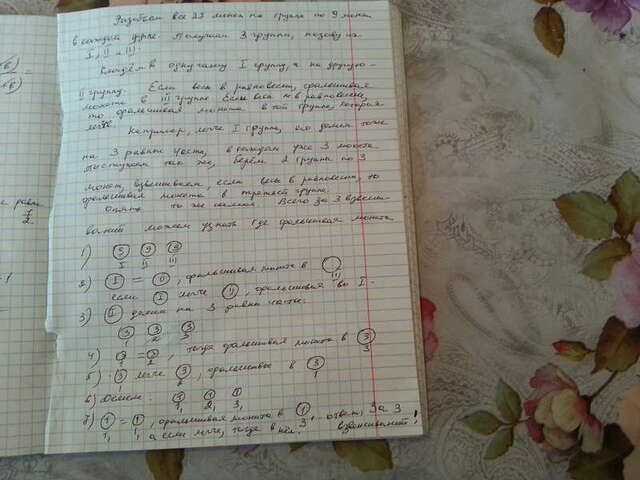 Разобьем все 27 монет на группы по 9 монет
в каждой групе. Получили 3 группы, назову их
I, II и III.
Кладём в одну чашу I группу, а на другую -
II группу. Если весы в равновесии, фальшивая
монета в III группе. Если весы не в равновесии,
то фальшивая монета в той группе, которая
легче.
Например, легче I группа, его делим тоже
на 3 равные части, в каждом уже 3 монеты
поступаем так же, берём 2 группы по 3
монет, взвешиваем, если весы в равновесии, то
фальшивая монета в третьей группе.
Опять то же самое. Всего за 3 взвеши-
ваний можем узнать где фальшивая монета
1) 9 9 9
I II III
2) I = II, фальшивая монета в
III
если I легче II, фальшивая во I.
3) I делим на 3 равны части:
3 3 3
1 2 3
4) = , тогда фальшивая монета в 3
1 2 3
5) 3 легче 3, фальшивые в 3
1 2 1
6) Делим: 1 1 1
1 2 3
7) 1 = 1, фальшивая монета в 1
а если легче, тогда в
ответ, За 3
взвешиваний!
2